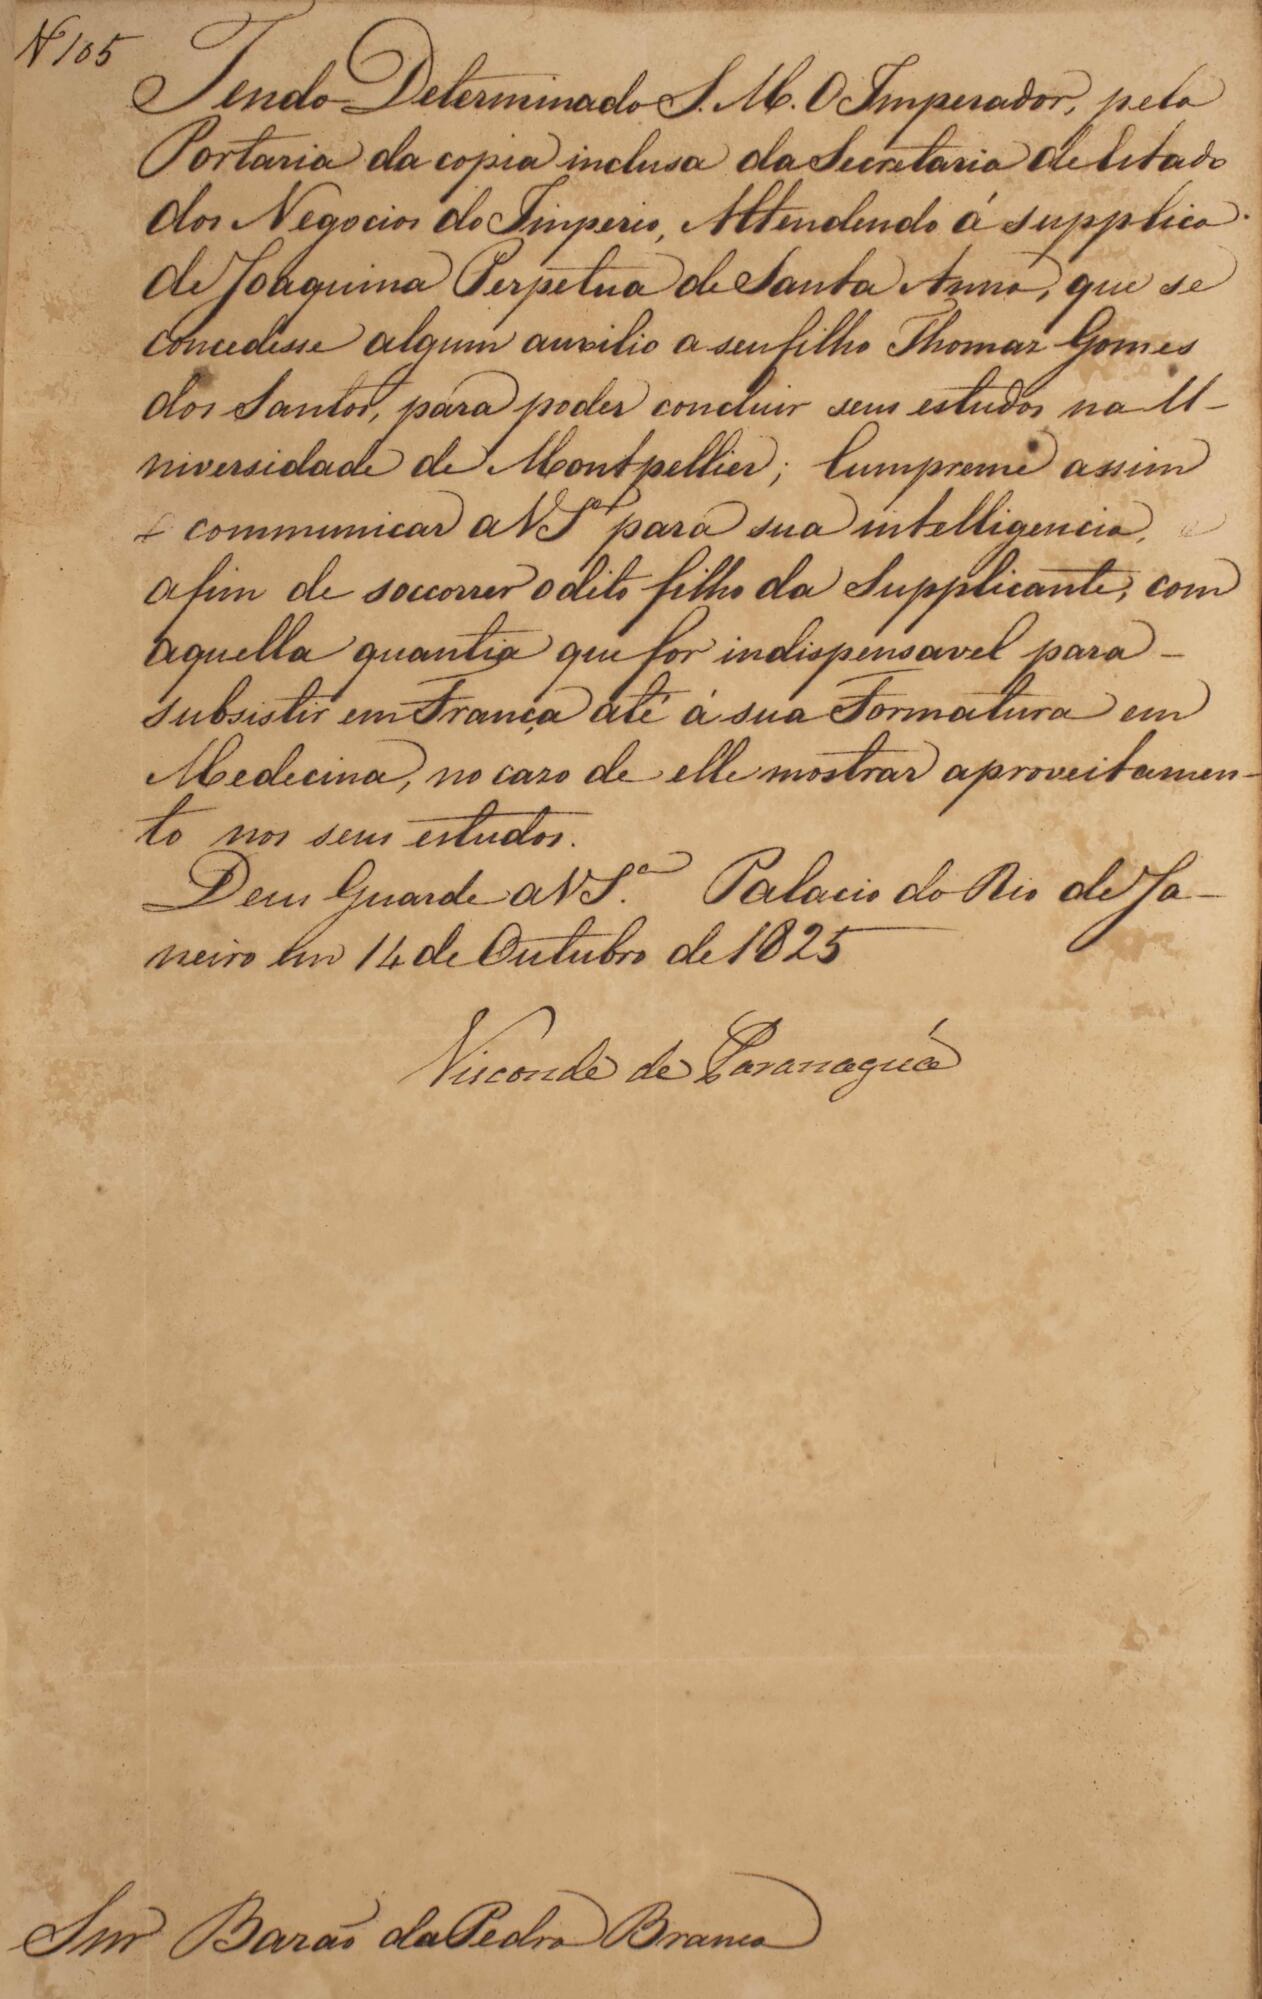 Nº 105
Tendo Determinado S. M. O Imperador, pela
Portaria da copia inclusa da Secretaria de Estado
dos Negocios do Imperio, Attendendo á supplica
de Joaquina Perpetua de Santa Anna, que se
concedesse algum auxilio a seu filho Thomaz Gomes
dos Santos, para poder concluir seus estudos na U-
niversidade de Montpellier; Cumpreme assim
communicar a VSª para sua intelligencia, e
afim de soccorrer o dito filho da Supplicante, com
aquella quantia que for indispensavel para -
subsistir em França até á sua Formatura em
Medecina, no cazo de elle mostrar aproveitamen-
to nos seus estudos.
Deus Guarde a VSª. Palacio do Rio de Ja-
neiro em 14 de Outubro de 1825
Visconde de Paranaguá
Snr Barão da Pedra Branca